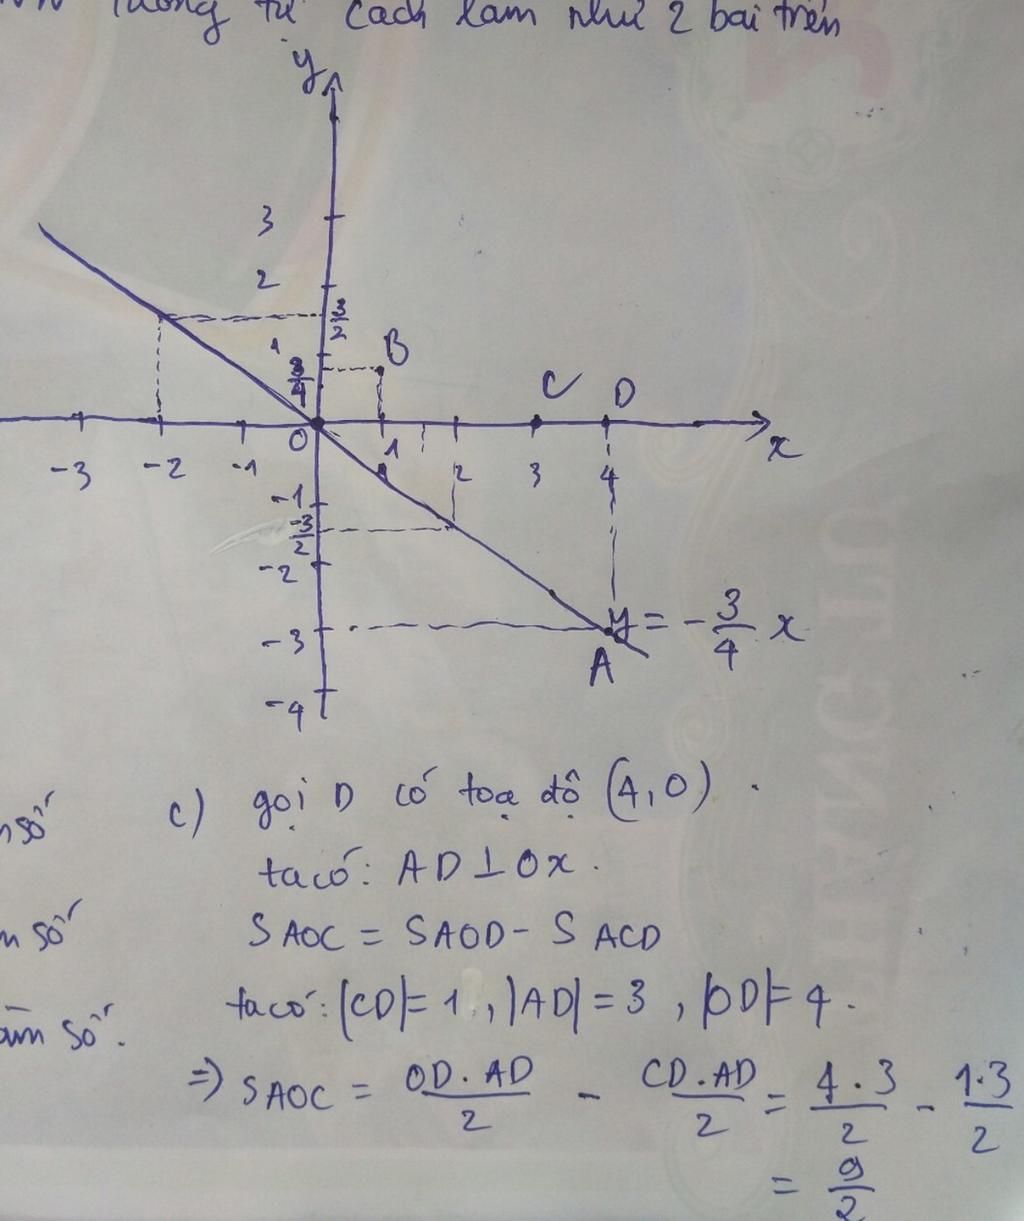 tương tự cách làm như 2 bài trên
y
3
2
3/2
1
B
3/4
C D
O 1 x
-3 -2 -1 2 3 4
-1
-3/2
-2
-3
y = -3/4 x
A
-4
c) gọi D có toạ độ (4,0) .
số
ta có: AD ⊥ Ox .
SAOC = SAOD - S ACD
số
ta có: |CD| = 1 , |AD| = 3 , |OD| = 4 .
số.
=> SAOC = OD.AD/2 - CD.AD/2 = 4.3/2 - 1.3/2
= 9/2